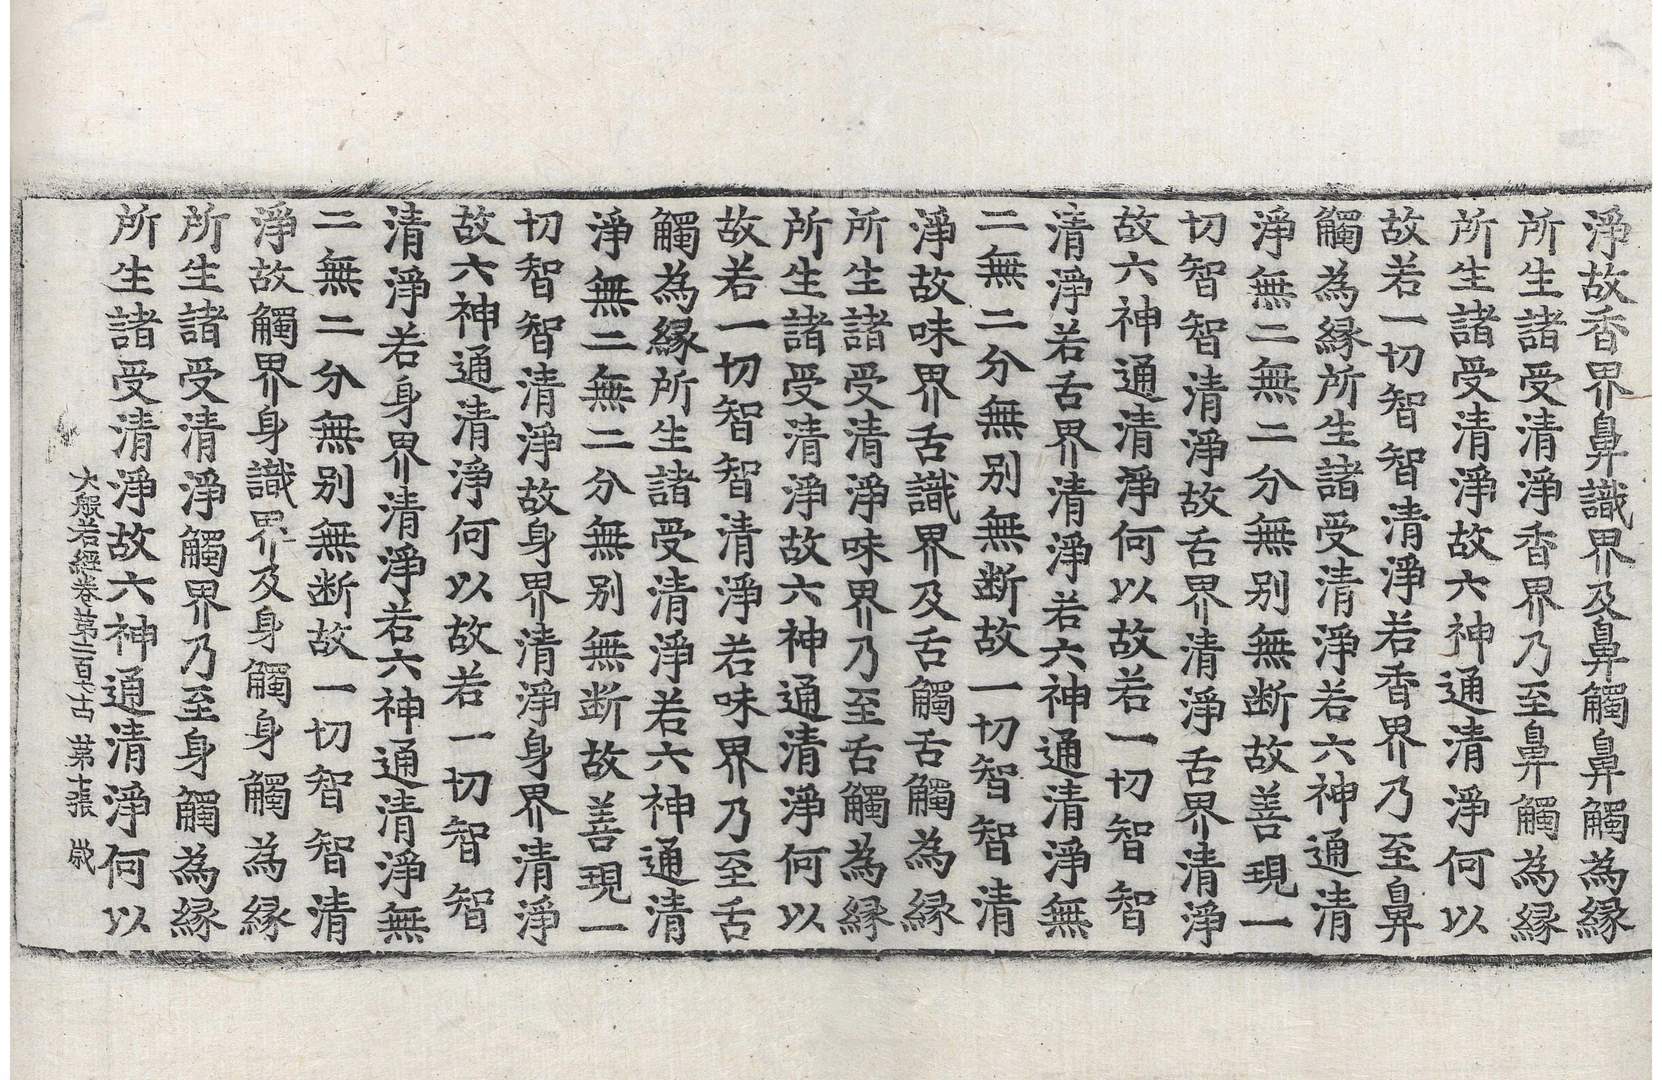 淨故香界鼻識界及鼻觸鼻觸為縁
所生諸受清淨香界乃至鼻觸為縁
所生諸受清淨故六神通清淨何以
故若一切智智清淨若香界乃至鼻
觸為縁所生諸受清淨若六神通清
淨無二無二分無别無断故善現一
切智智清淨故舌界清淨舌界清淨
故六神通清淨何以故若一切智智
清淨若舌界清淨若六神通清淨無
二無二分無别無断故一切智智清
淨故味界舌識界及舌觸舌觸為縁
所生諸受清淨味界乃至舌觸為縁
所生諸受清淨故六神通清淨何以
故若一切智智清淨若味界乃至舌
觸為縁所生諸受清淨若六神通清
淨無二無二分無别無断故善現一
切智智清淨故身界清淨身界清淨
故六神通清淨何以故若一切智智
清淨若身界清淨若六神通清淨無
二無二分無别無断故一切智智清
淨故觸界身識界及身觸身觸為縁
所生諸受清淨觸界乃至身觸為縁
所生諸受清淨故六神通清淨何以
大般若經卷第二百六 第十張